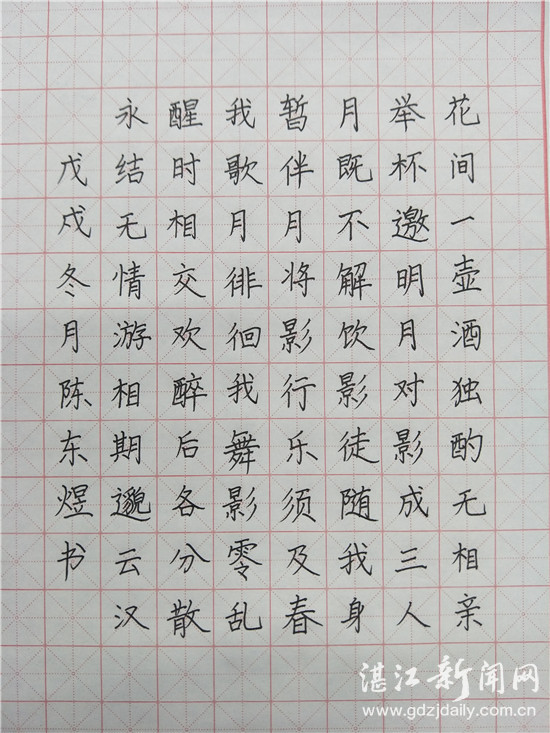 花间一壶酒独酌无相亲
举杯邀明月对影成三人
月既不解饮影徒随我身
暂伴月将影行乐须及春
我歌月徘徊我舞影零乱
醒时相交欢醉后各分散
永结无情游相期邈云汉
戊戌冬月陈东煜书
湛江新闻网
www.gdzjdaily.com.cn